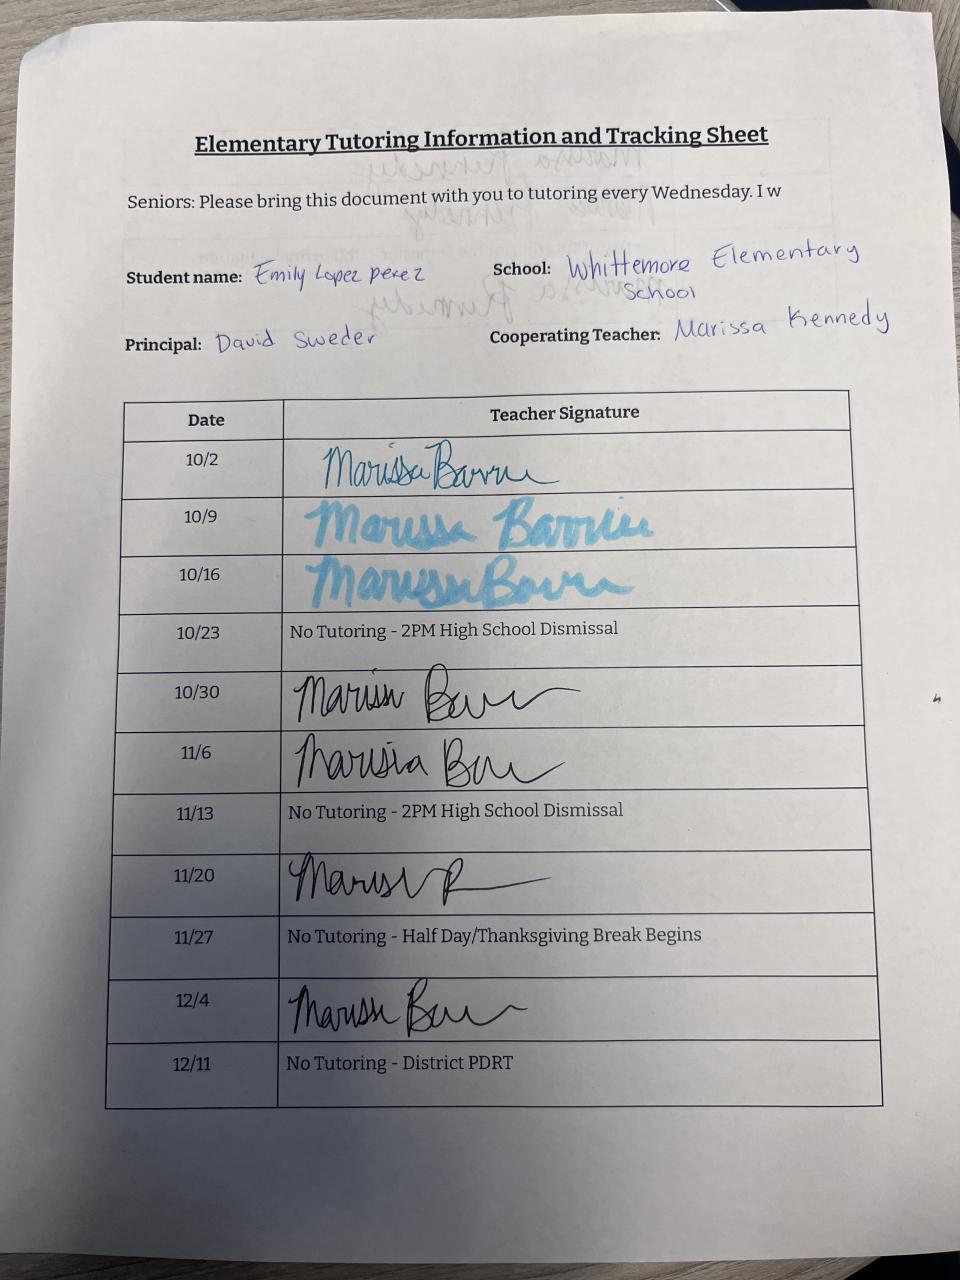 Elementary Tutoring Information and Tracking Sheet
Seniors: Please bring this document with you to tutoring every Wednesday. I w
Student name: Emily Lopez perez School: Whittemore Elementary
School
Principal: David Sweder Cooperating Teacher: Marissa Kennedy
Date Teacher Signature
10/2 Marissa
10/9 Marissa
10/16 Marissa
10/23 No Tutoring - 2PM High School Dismissal
10/30
11/6 Marissa
11/13 No Tutoring - 2PM High School Dismissal
11/20
11/27 No Tutoring - Half Day/Thanksgiving Break Begins
12/4
12/11 No Tutoring - District PDRT